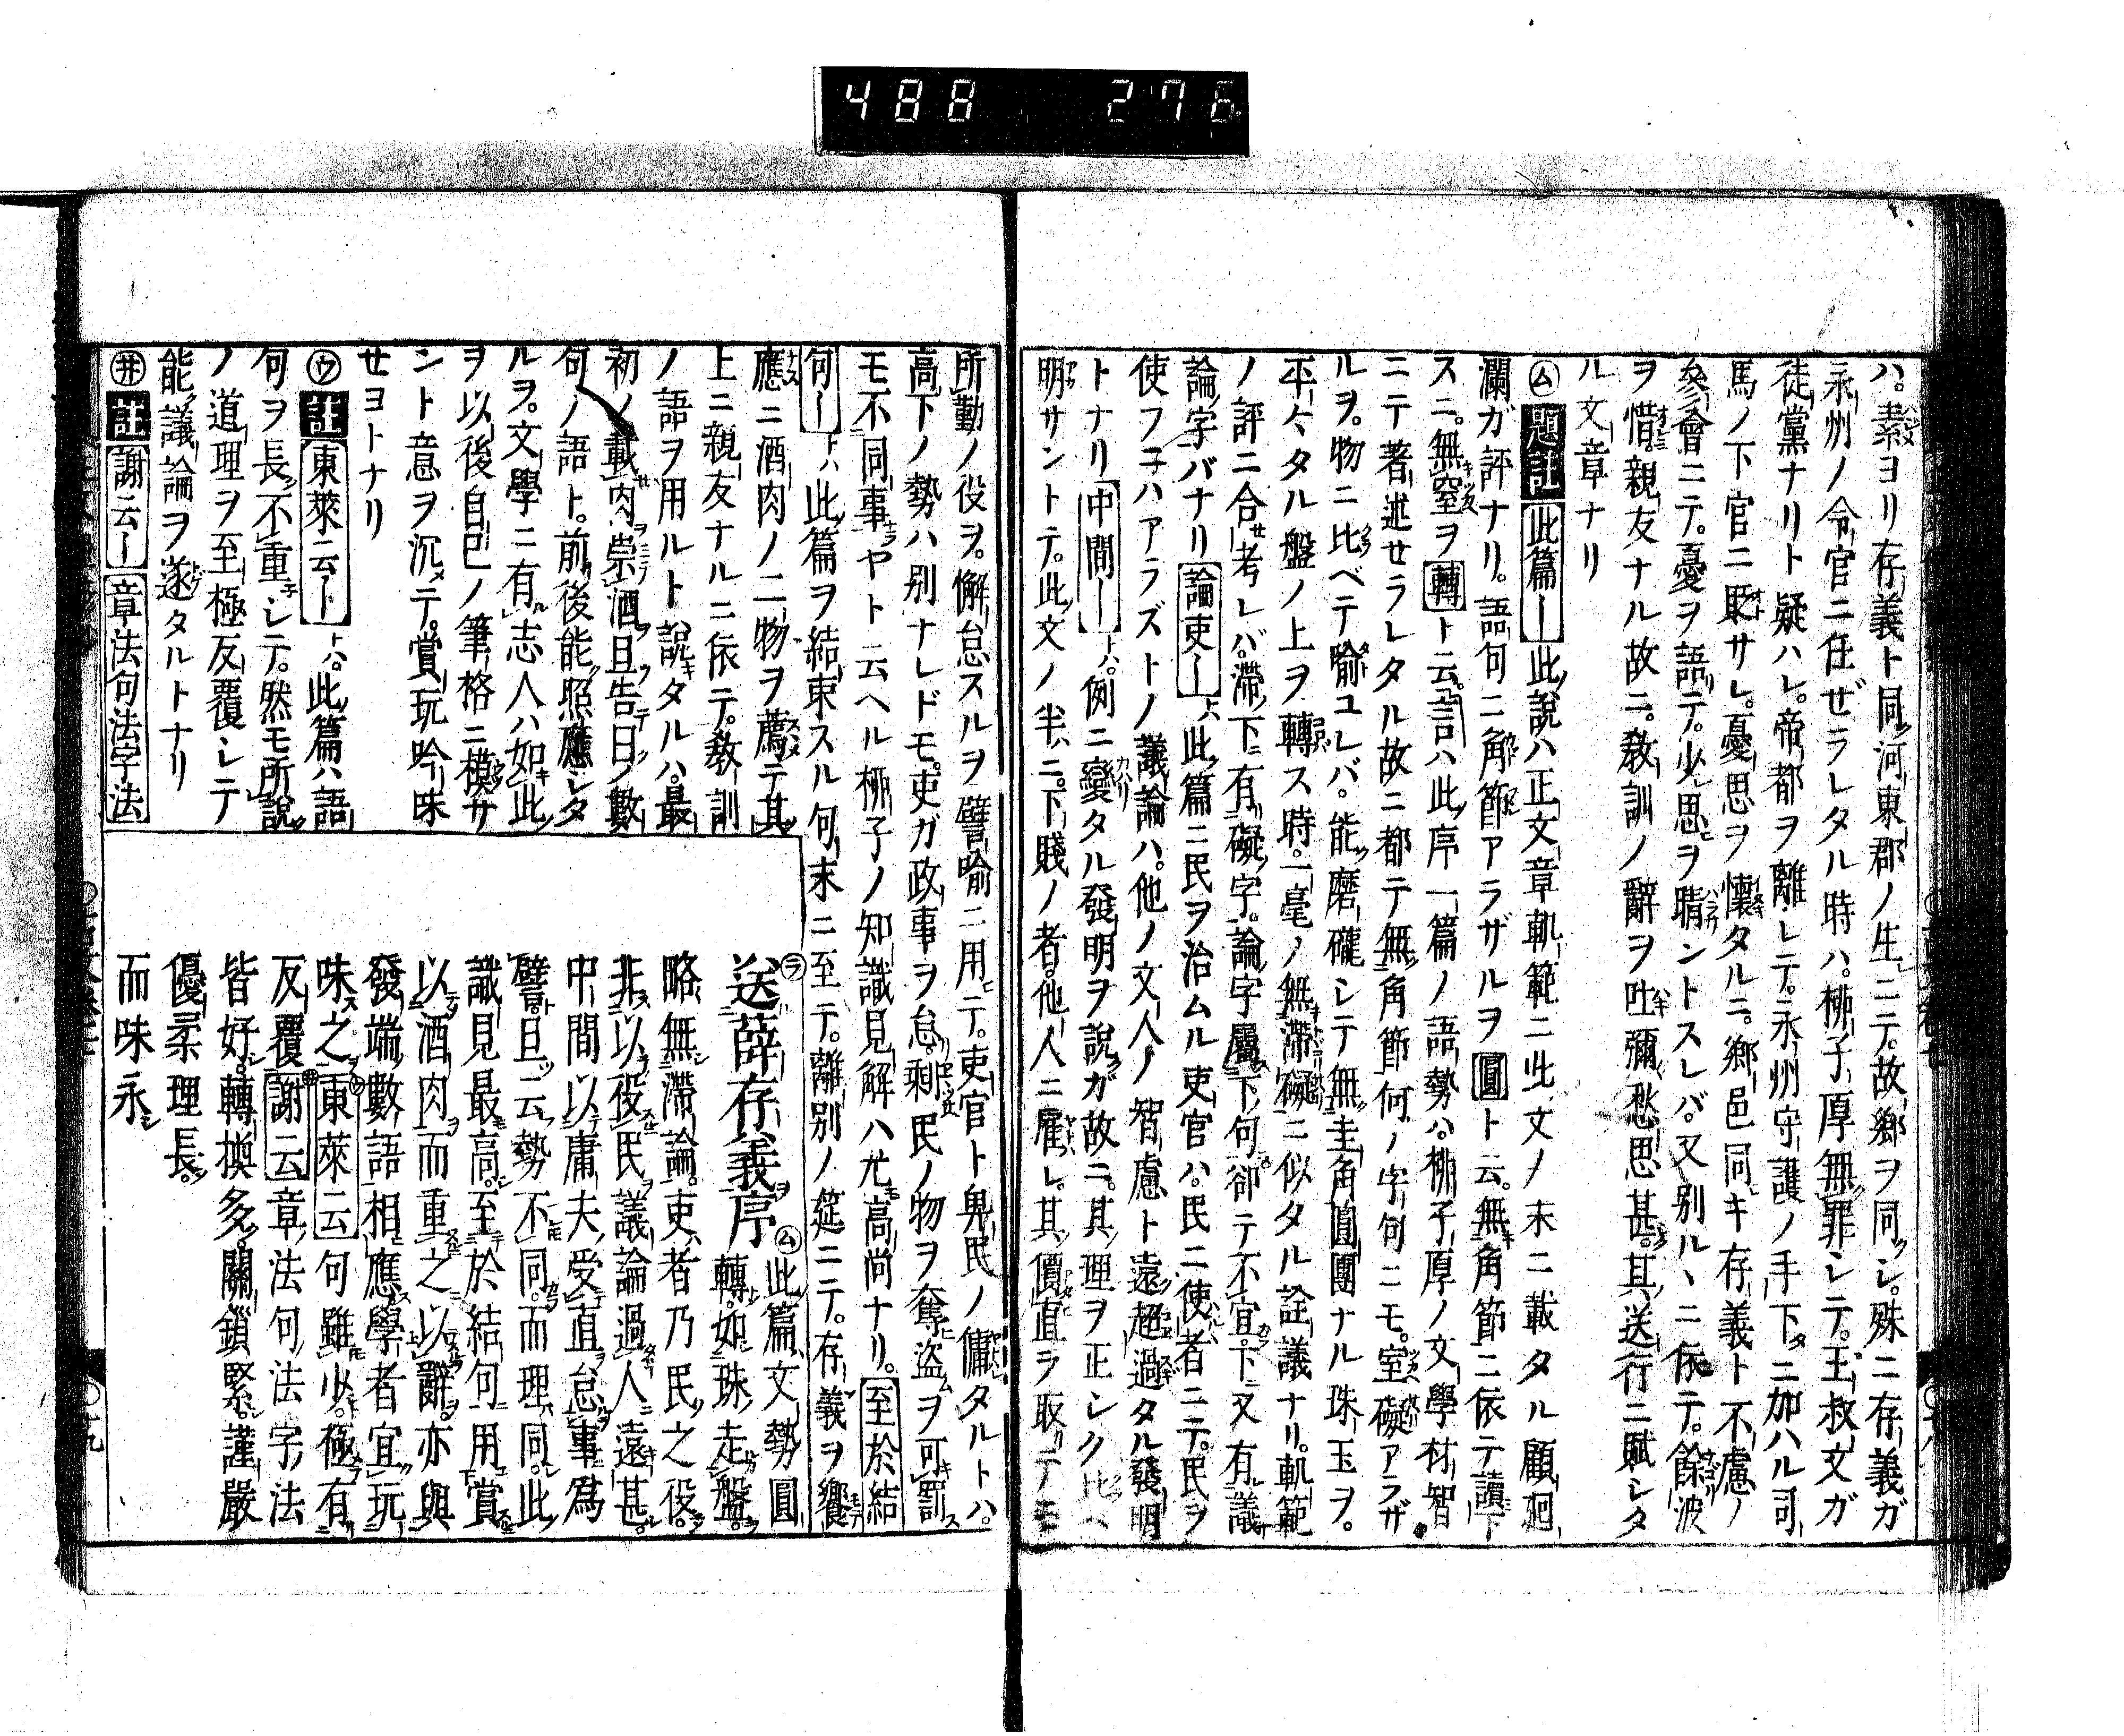 488 276
ハ。素ヨリ存義ト同河東郡ノ生ニテ。故郷ヲ同シ。殊ニ存義ガ
永州ノ令官ニ任ゼラレタル時ハ。柳子厚無罪シテ。王叔文ガ
徒黨ナリト疑ハレ。帝都ヲ離レテ。永州守護ノ手下ニ加ハル司
馬ノ下官ニ貶サレ。憂思ヲ懷タルニ。郷邑同キ存義ト不慮ノ
參會ニテ。憂ヲ語テ。少思ヲ晴ントスレバ。又別ルヽニ依テ。餘波
ヲ惜。親友ナル故ニ。敎訓ノ辭ヲ吐彌愁思甚。其送行ニ賦シタ
ル文章ナリ
㋰題註此篇ー此說ハ正文章軌範ニ此文ノ末ニ載タル顧廻
瀾ガ評ナリ。語句ニ角節アラザルヲ圓ト云。無角節ニ依テ讀下
スニ。無窒ヲ轉ト云。言ハ此序一篇ノ語勢ハ。柳子厚ノ文學材智
ニテ著述セラレタル故ニ都テ無角節何ノ字句ニモ。室礙アラザ
ルヲ。物ニ比ベテ喻ユレバ。能磨礲シテ無圭角圓團ナル珠玉ヲ。
平ヘタル盤ノ上ヲ轉ス時。一毫ノ無滯礙ニ似タル詮議ナリ。軌範
ノ評ニ合考レバ。滯下ニ有礙字。論字屬下句卻テ不宜。下又有議
論字バナリ論吏ー上ハ此篇ニ民ヲ治ムル吏官ハ。民ニ使者ニテ。民ヲ
使フヿハアラズトノ議論ハ。他ノ文人ノ智慮ト遠超過タル發明
トナリ中間ー上ハ。例ニ變タル發明ヲ說ガ故ニ。其理ヲ正シク
明サントテ。此文ノ半ニ。下賤ノ者。他人ニ雇レ。其價直ヲ取リテモ
所勤ノ役ヲ。懈怠スルヲ譬喻ニ用テ。吏官ト卑民ノ傭タルトハ。
高下ノ勢ハ別ナレドモ。吏ガ政事ヲ怠。剩民ノ物ヲ奪盜ヲ可罰
モ不同事ヤト云ヘル柳子ノ知識見解ハ尤高尚ナリ。至於結
句ー上ハ此篇ヲ結束スル句末ニ至テ。離別ノ筵ニテ。存義ヲ饗
應ニ酒肉ノ二物ヲ薦テ其
上ニ親友ナルニ依テ。敎訓
ノ語ヲ用ルト說タルハ。最
初ノ載肉崇酒且告曰ノ數
句ノ語ト。前後能照應シタ
ルヲ。文學ニ有志人ハ如此
ヲ以後自己ノ筆格ニ模サ
ント意ヲ沉テ。賞玩吟味
セヨトナリ
㋒註東萊云ー上ハ。此篇ハ語
句ヲ長不重シテ。然モ所說
ノ道理ヲ至極反覆シテ
能議論ヲ遂タルトナリ
㋼註謝云ー章法句法字法
㋶送薛存義序㋰此篇文勢圓
轉。如珠走盤。
略無滯論。吏者乃民之役。
非以役民議論過人遠甚。
中間以庸夫受直怠事爲
譬。且云勢不同。而理同。此
識見最高。至於結句用賞
以酒肉而重之以辭。亦與
發端數語相應學者宜玩
味之東萊云句雖少。極有
反覆謝云章法句法字法
皆好。轉換多。關鎖緊。謹嚴
優柔理長。
而味永